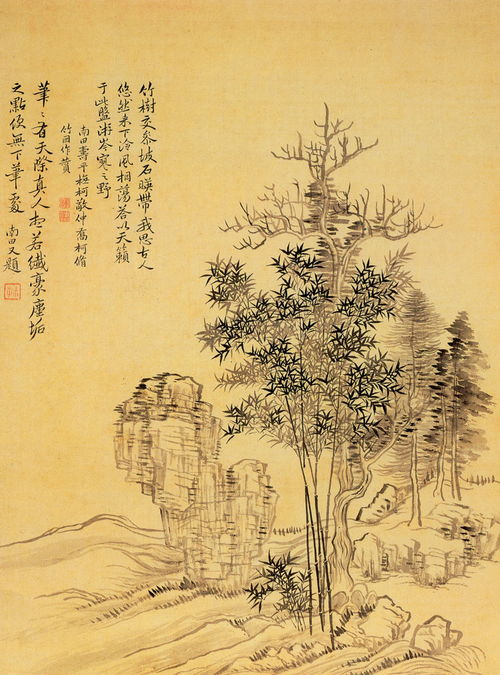 竹樹交參坡石暎帶我思古人
悠然来下泠風相蕩荅以天籟
于此盤游岑寂之野
南田壽平橅柯敬仲喬柯脩
竹作贊
筆〻有天際真人想若纖豪塵垢
之點便無下筆處 南田又題